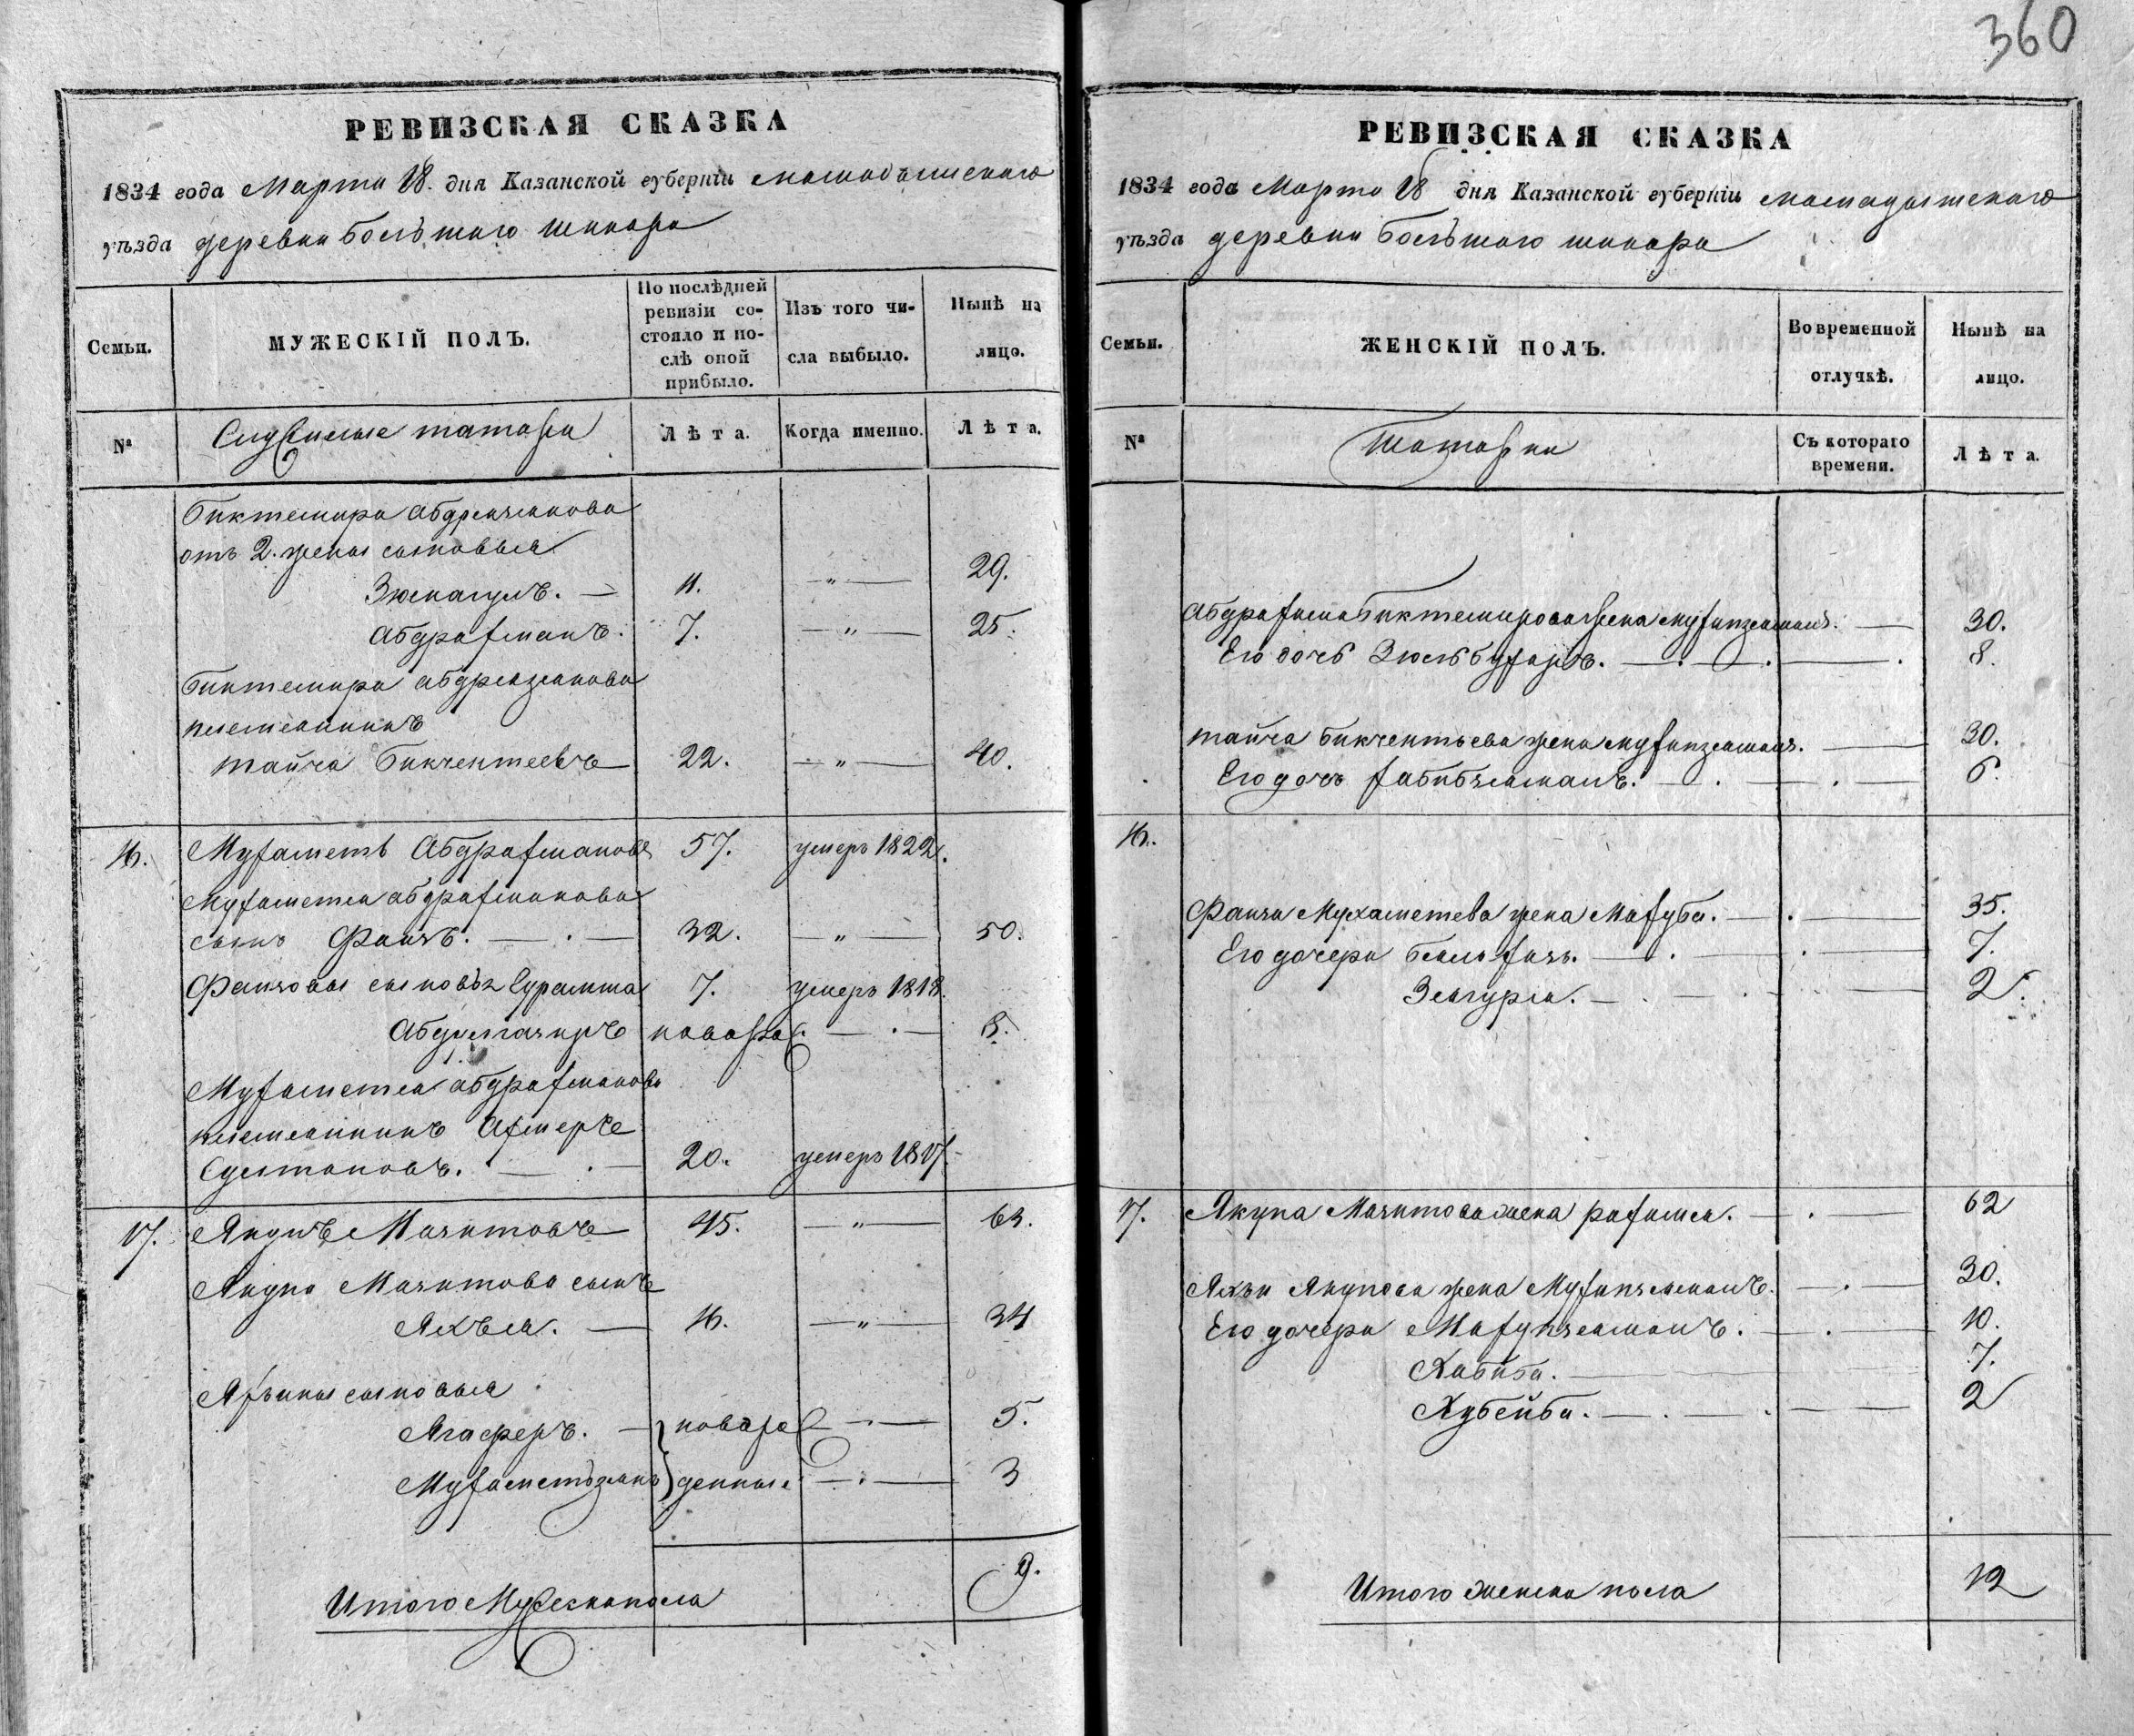 360
РЕВИЗСКАЯ СКАЗКА
1834 года Марта 18. дня Казанской губерніи мамадышскаго
уѣзда деревни Большаго шинара
Семьи.
МУЖЕСКІЙ ПОЛЪ.
По послѣдней ревизіи состояло и послѣ оной прибыло.
Изъ того числа выбыло.
Нынѣ на лицо.
№
Служилые татары
Лѣта.
Когда именно.
Лѣта.
Биктемира абдрезякова
отъ 2. жены сыновья
11. — „ — 29.
Абдрахманъ. 7. — „ — 25.
Биктемира абдрезякова
племянникъ
Бикчентеевъ 22. — „ — 40.
16. Мухаметъ Абдрахмановъ 57. умеръ 1822.
Мухаметя абдрахманова
сынъ Фаизъ. — 32. — „ — 50.
Фаизовы сыновья 7. умеръ 1818.
новорож. — 8.
Мухаметя абдрахманова
племянникъ
20. умеръ 1817.
17. Якупъ Мачитовъ 45. — „ — 63.
Якупа Мачитова сынъ
Яхъя. — 16. — „ — 34
Яхъины сыновья
Ягаферъ. — новорож — 5.
Мухаметьзянъ денные — 3
Итого Мужеска пола 9.
РЕВИЗСКАЯ СКАЗКА
1834 года Марта 18 дня Казанской губерніи мамадышскаго
уѣзда деревни Большаго шинара
Семьи.
ЖЕНСКІЙ ПОЛЪ.
Во временной отлучкѣ.
Нынѣ на лицо.
№
Татарки
Съ котораго времени.
Лѣта.
Абдрахмана Биктемирова жена 30.
Его дочь 8.
Бикчентьева жена 30.
Его дочь 6.
16.
Фаиза Мухаметева жена Махуба. — 35.
Его дочери 7.
2.
17. Якупа Мачитова жена рахима. — 62
Яхъи Якупова жена 30.
Его дочери 10.
Хабиба. — 7.
Хубейба. — 2
Итого женска пола 12